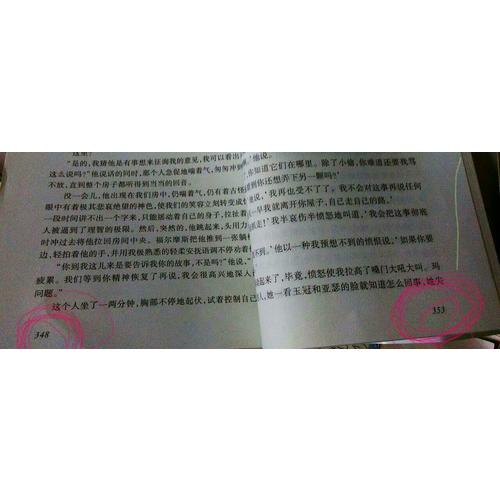 这里?
“是的,我猜他是有事想来征询我的意见,我可以看出
这么说吗?”他说话的同时,那个人急促地喘着气,匆匆冲到
不放,直到整个房子都听得到当当的回音。
没一会儿,他出现在我们房中,仍喘着气,仍有着古怪
眼中有着极其悲哀绝望的神色,使我们的笑容立刻转变成
一段时间讲不出一个字来,只能摇动着自己的身子,拉扯着
人被逼到了理智的极限。然后,突然的,他跳起来,头用力
时冲过去将他拉回房间中央。福尔摩斯把他推到一张躺
边,轻拍着他的手,并用我极熟悉的轻柔安抚语调不停劝着
“你到我这儿来是要告诉我你的故事,不是吗?”他说,
疲累。我们等到你精神恢复了再说,我会很高兴地深入
问题。”
这个人坐了一两分钟,胸部不停地起伏,试着控制自己
348
他说。
你知道它们在哪里。除了小偷,你难道还要我骂
到你还想弄下另一颗吗?’
他说,‘我再也受不了了。我不会对这事再说任何
早我就离开你屋子,自己走自己的路。’
!’我半哀伤半愤怒地叫道,‘我会把这事彻底
不到。’他以一种我预想不到的愤恨说,‘如果你要
起来了,毕竟,愤怒使我拉高了嗓门大吼大叫。玛
人,她一看玉冠和亚瑟的脸就知道怎么回事,她失
353